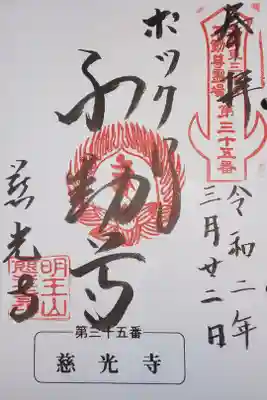 奉拝
第三十五番
令和二年
三月廿二日
ポックリ
不動尊
慈光寺
明王山
第三十五番
慈光寺